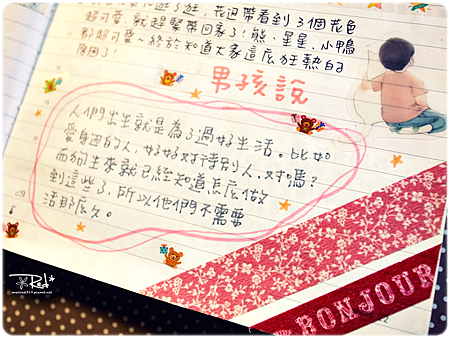 逛了逛，花迅帶看到3個花色
超可愛，就趕緊帶回家了！熊、星星、小鴨
都超可愛～終於知道大家這麼狂熱的
原因了！
男孩說
人們出生就是為了過好生活。比如
愛身邊的人，好好對待別人，對嗎？
而狗生來就已經知道怎麼做
到這些了，所以他們不需要
活那麼久。
BONJOUR
Red